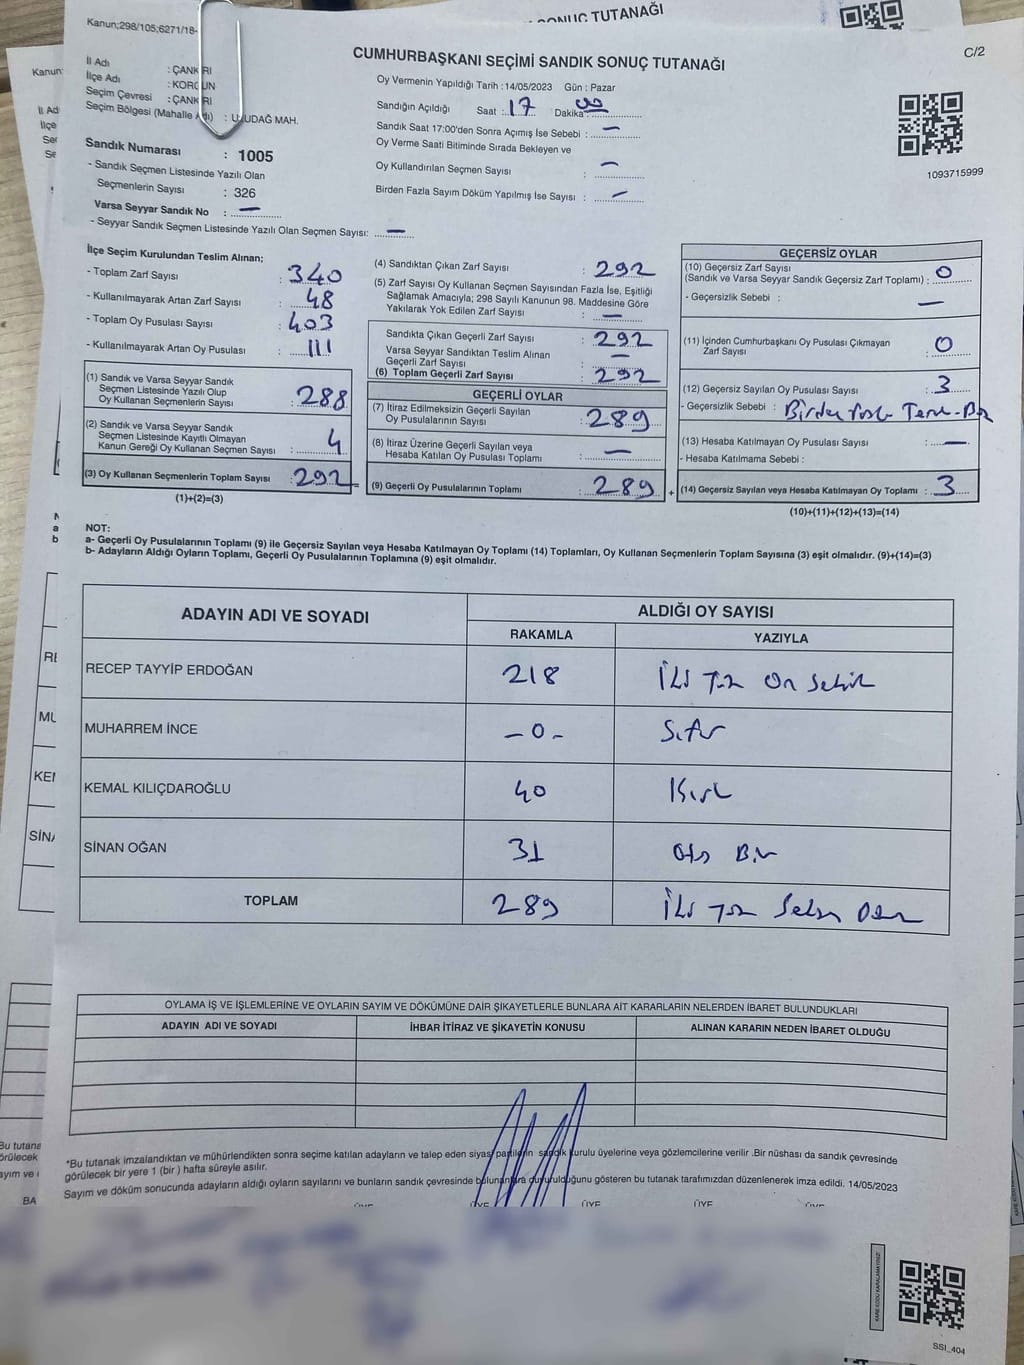 SONUÇ TUTANAĞI
Kanun;298/105;6271/18-
C/2
CUMHURBAŞKANI SEÇİMİ SANDIK SONUÇ TUTANAĞI
İl Adı : ÇANKIRI
İlçe Adı : KORGUN
Seçim Çevresi : ÇANKIRI
Seçim Bölgesi (Mahalle Adı) : ULUDAĞ MAH.
Sandık Numarası : 1005
- Sandık Seçmen Listesinde Yazılı Olan
Seçmenlerin Sayısı : 326
Varsa Seyyar Sandık No : —
- Seyyar Sandık Seçmen Listesinde Yazılı Olan Seçmen Sayısı: —
Oy Vermenin Yapıldığı Tarih : 14/05/2023 Gün : Pazar
Sandığın Açıldığı Saat : 17 Dakika
Sandık Saat 17:00'den Sonra Açımış İse Sebebi : —
Oy Verme Saati Bitiminde Sırada Bekleyen ve
Oy Kullandırılan Seçmen Sayısı : —
Birden Fazla Sayım Döküm Yapılmış İse Sayısı : —
1093715999
İlçe Seçim Kurulundan Teslim Alınan;
- Toplam Zarf Sayısı : 340
- Kullanılmayarak Artan Zarf Sayısı : 48
- Toplam Oy Pusulası Sayısı : 403
- Kullanılmayarak Artan Oy Pusulası : 111
(1) Sandık ve Varsa Seyyar Sandık
Seçmen Listesinde Yazılı Olup
Oy Kullanan Seçmenlerin Sayısı : 288
(2) Sandık ve Varsa Seyyar Sandık
Seçmen Listesinde Kayıtlı Olmayan
Kanun Gereği Oy Kullanan Seçmen Sayısı : 4
(3) Oy Kullanan Seçmenlerin Toplam Sayısı : 292
(1)+(2)=(3)
(4) Sandıktan Çıkan Zarf Sayısı : 292
(5) Zarf Sayısı Oy Kullanan Seçmen Sayısından Fazla İse, Eşitliği
Sağlamak Amacıyla; 298 Sayılı Kanunun 98. Maddesine Göre
Yakılarak Yok Edilen Zarf Sayısı : —
Sandıkta Çıkan Geçerli Zarf Sayısı : 292
Varsa Seyyar Sandıktan Teslim Alınan
Geçerli Zarf Sayısı : —
(6) Toplam Geçerli Zarf Sayısı : 292
GEÇERLİ OYLAR
(7) İtiraz Edilmeksizin Geçerli Sayılan
Oy Pusulalarının Sayısı : 289
(8) İtiraz Üzerine Geçerli Sayılan veya
Hesaba Katılan Oy Pusulası Toplamı : —
(9) Geçerli Oy Pusulalarının Toplamı : 289
GEÇERSİZ OYLAR
(10) Geçersiz Zarf Sayısı
(Sandık ve Varsa Seyyar Sandık Geçersiz Zarf Toplamı) : 0
- Geçersizlik Sebebi : —
(11) İçinden Cumhurbaşkanı Oy Pusulası Çıkmayan
Zarf Sayısı : 0
(12) Geçersiz Sayılan Oy Pusulası Sayısı : 3
- Geçersizlik Sebebi :
(13) Hesaba Katılmayan Oy Pusulası Sayısı : —
- Hesaba Katılmama Sebebi :
(14) Geçersiz Sayılan veya Hesaba Katılmayan Oy Toplamı : 3
(10)+(11)+(12)+(13)=(14)
NOT:
a- Geçerli Oy Pusulalarının Toplamı (9) ile Geçersiz Sayılan veya Hesaba Katılmayan Oy Toplamı (14) Toplamları, Oy Kullanan Seçmenlerin Toplam Sayısına (3) eşit olmalıdır. (9)+(14)=(3)
b- Adayların Aldığı Oyların Toplamı, Geçerli Oy Pusulalarının Toplamına (9) eşit olmalıdır.
ADAYIN ADI VE SOYADI ALDIĞI OY SAYISI
RAKAMLA YAZIYLA
RECEP TAYYİP ERDOĞAN 218 İki yüz On Sekiz
MUHARREM İNCE - 0 - Sıfır
KEMAL KILIÇDAROĞLU 40 Kırk
SİNAN OĞAN 31 Otuz Bir
TOPLAM 289 İki yüz Seksen Dokuz
OYLAMA İŞ VE İŞLEMLERİNE VE OYLARIN SAYIM VE DÖKÜMÜNE DAİR ŞİKAYETLERLE BUNLARA AİT KARARLARIN NELERDEN İBARET BULUNDUKLARI
ADAYIN ADI VE SOYADI İHBAR İTİRAZ VE ŞİKAYETİN KONUSU ALINAN KARARIN NEDEN İBARET OLDUĞU
*Bu tutanak imzalandıktan ve mühürlendikten sonra seçime katılan adayların ve talep eden siyasi partilerin sandık kurulu üyelerine veya gözlemcilerine verilir .Bir nüshası da sandık çevresinde
görülecek bir yere 1 (bir ) hafta süreyle asılır.
Sayım ve döküm sonucunda adayların aldığı oyların sayılarını ve bunların sandık çevresinde bulunanlara duyurulduğunu gösteren bu tutanak tarafımızdan düzenlenerek imza edildi. 14/05/2023
ÜYE ÜYE ÜYE ÜYE ÜYE
KARE KODU KARALAMAYINIZ!
SSI_404